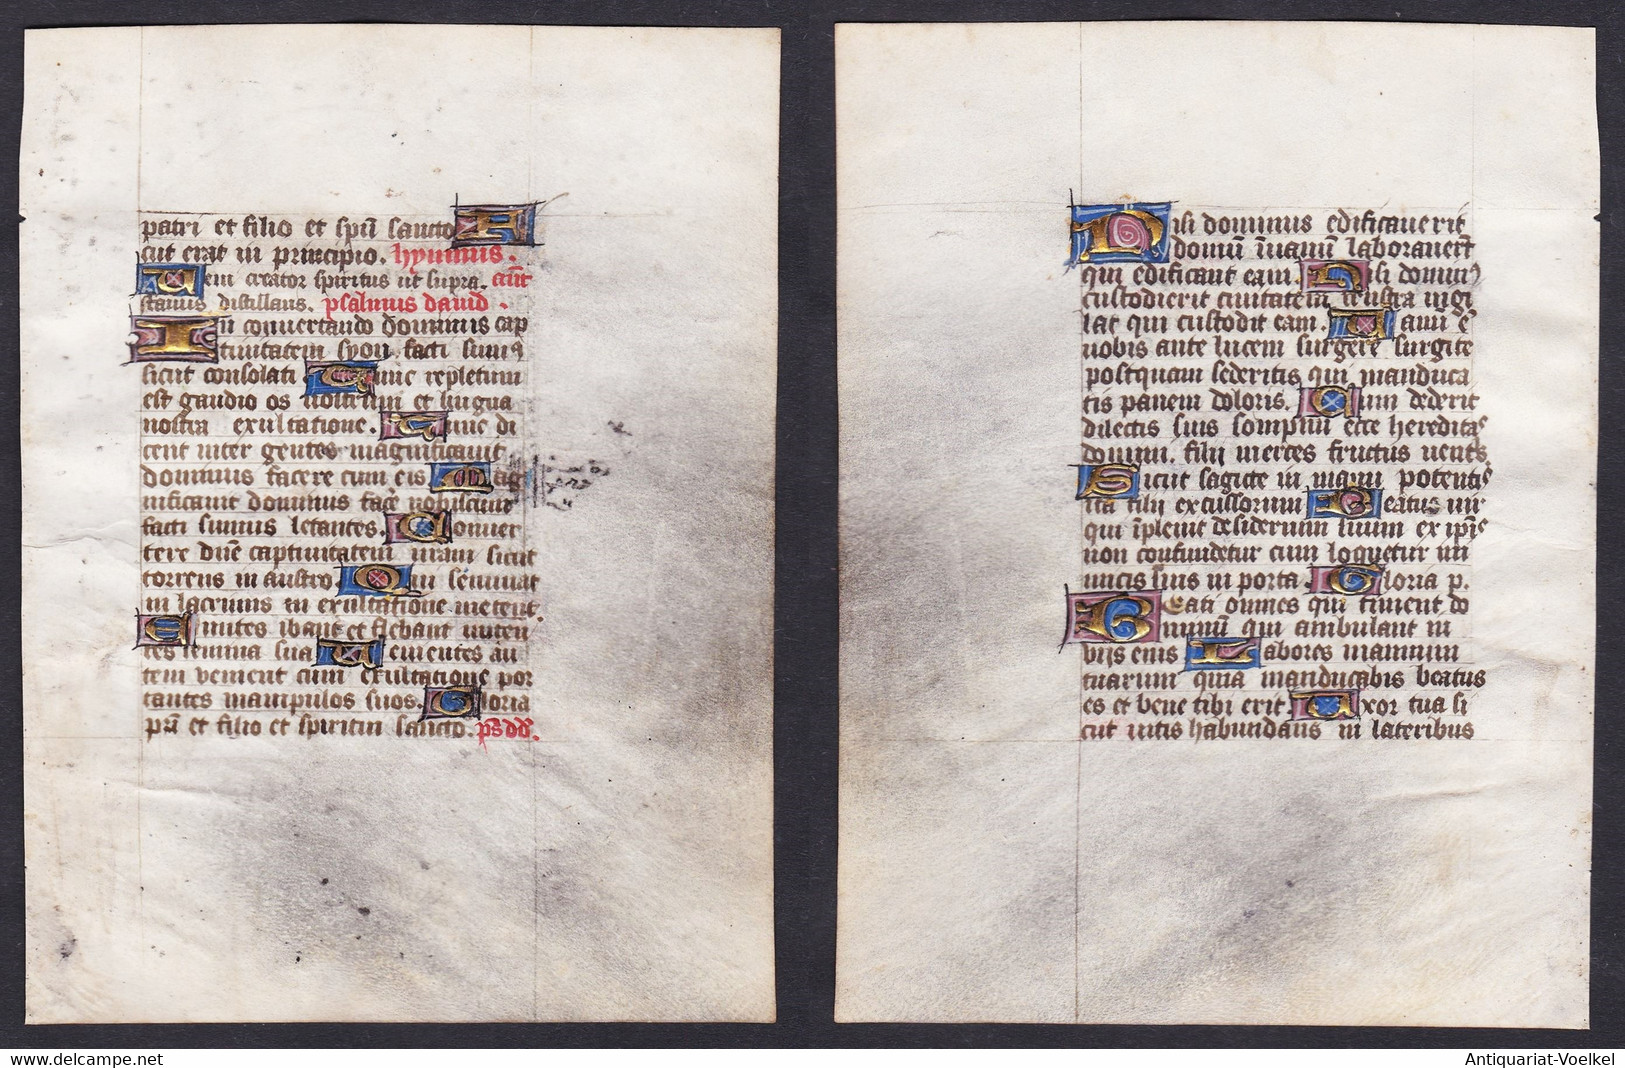 patri et filio et spũ sancto S
cut erat in principio. hymnus.
Ueni creator spiritus ut supra. añt
stanus distillans. psalmus dauid.
In conuertendo dominus cap
tiuitatem syon facti sumꝰ
sicut consolati. Tunc repletum
est gaudio os nostrum et lingua
nostra exultatione. Tunc di
cent inter gentes magnificauit
dominus facere cum eis Mag
nificauit dominus facẽ nobiscum
facti sumus letantes. Conuer
tere dñe captiuitatem nr̃am sicut
torrens in austro. Qui seminãt
in lacrimis in exultatione metent.
Euntes ibant et flebant mitten
tes semina sua Uenientes au
tem venient cum exultatione por
tantes manipulos suos. Gloria
pr̃i et filio et spiritui sancto. p̃s dd̃.
Nisi dominus edificauerit
domũ ĩuanũ laborauer̃t
qui edificant eam. Nisi dominꝰ
custodierit ciuitatem frustra uigi
lat qui custodit eam. Uanũ ẽ
uobis ante lucem surgere surgite
postquam sederitis qui manduca
tis panem doloris. Cum dederit
dilectis suis sompnũ ecce hereditaˢ
domini. filij merces fructus uentˢ
Sicut sagite in manu potentiˢ
ita filij excussorum Beatus uir
qui ĩpleuit desiderium suum ex ipĩˢ
non confundetur cum loquetur ini
micis suis in porta Gloria p.
Beati omnes qui timent do
minum qui ambulant in
vijs eius Labores manuum
tuarum quia manducabis beatus
es et bene tibi erit. Uxor tua si
cut uitis habundans in lateribus
Antiquariat-Voelkel
delcampe.net